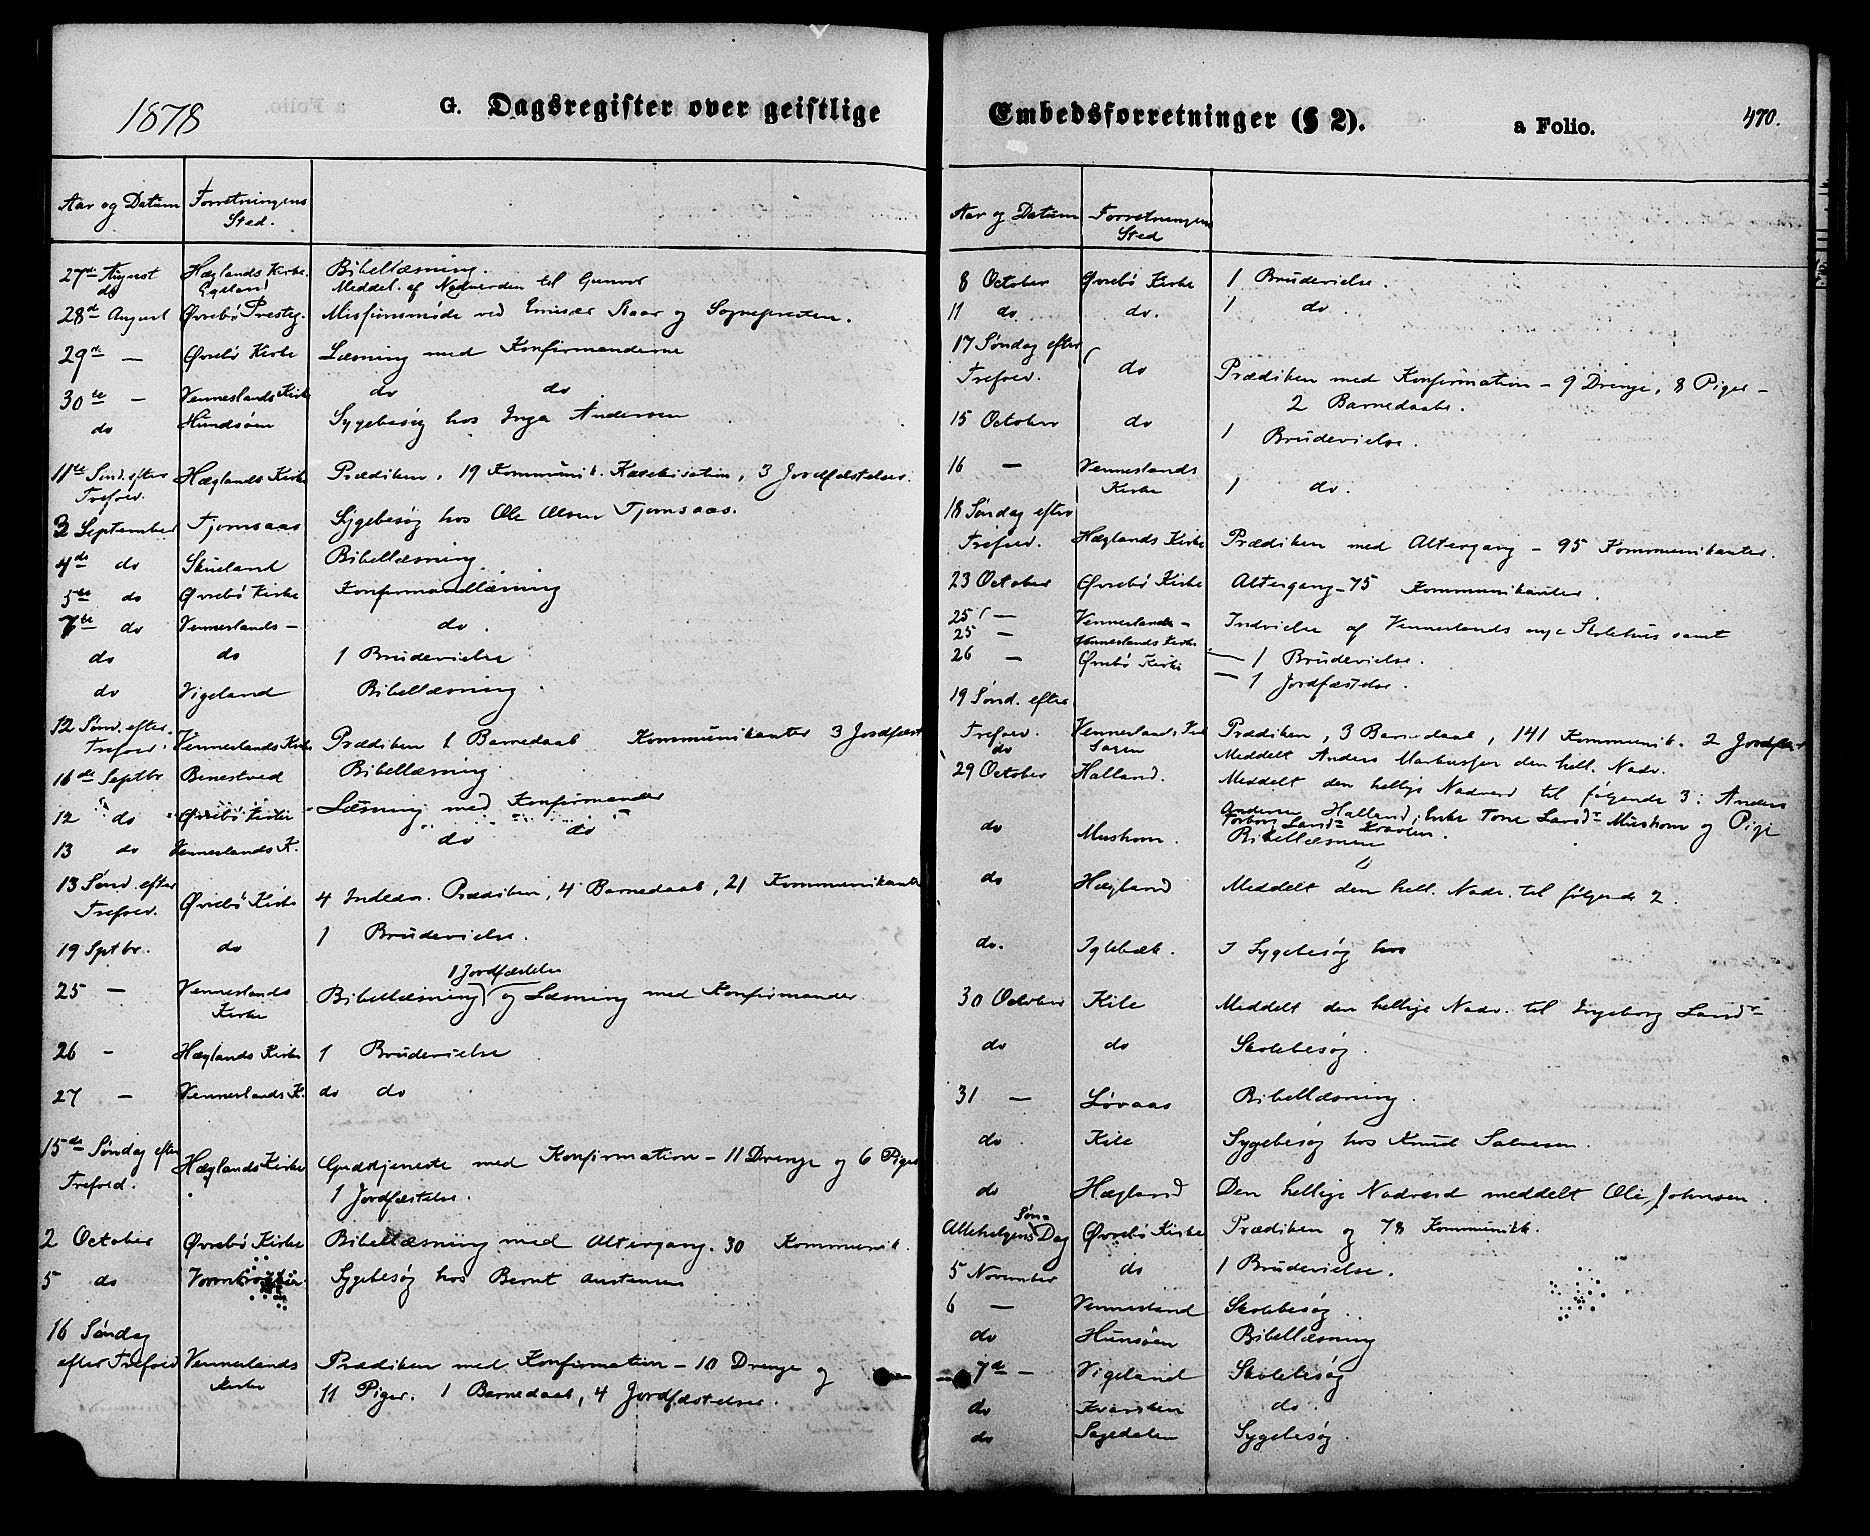 1878
G. Dagsregister over geistlige
Aar og Datum Forretningens Sted.
27de August Hæglands Kirke. Bibellæsning.
do Egeland Meddel. af Nadverden til Gunvor
28de August Øvrebø Prestg. Missionsmøde ved Emisær Aaar og Sognepresten.
29de — Øvrebø Kirke Læsning med Konfirmanderne
30te — Venneslands Kirke do do
do Hundsøen Sygebesøg hos Inga Andersen
11te Sønd. efter Trefold. Hæglands Kirke Prædiken, 19 Kommunik. Katekisation, 3 Jordfæstelser.
3 September Fjomsaas Sygebesøg hos Ole Olsen Fjomsaas.
4de do Skueland Bibellæsning.
5te do Øvrebø Kirke Konfirmandlæsning
7de do Venneslands — do.
do do 1 Brudevielse
do Vigeland Bibellæsning.
12 Sønd. efter Trefold. Venneslands Kirke Prædiken 1 Barnedaab Kommunikanter 3 Jordfæst
16de Septbr. Benestved Bibellæsning
12 do Øvrebø Kirke Læsning med Konfirmander
13 do Venneslands K. do do
13 Sønd. efter Trefold. Øvrebø Kirke 4 Indledn. Prædiken, 4 Barnedaab, 21 Kommunikanter
19 Sptbr. do 1 Brudevielse.
1 Jordfæstelse
25 — Venneslands Kirke Bibellæsning og Læsning med Konfirmander
26 — Hæglands Kirke 1 Brudevielse
27 — Venneslands K. do do
15de Søndag efter Trefold. Hæglands Kirke Gudstjeneste med Konfirmation — 11 Drenge og 6 Piger
1 Jordfæstelse.
2 October Øvrebø Kirke Bibellæsning med Altergang. 30 Kommunik.
5 do Sygebesøg hos Bernt Austensen
16 Søndag
efter Trefold Venneslands Kirke Prædiken med Konfirmation — 10 Drenge og
11 Piger. 1 Barnedaab, 4 Jordfæstelser.
Embedsforretninger (§ 2). a Folio. 470.
Aar og Datum Forretningens Sted
8 October Øvrebø Kirke 1 Brudevielse.
11 do do. 1 do.
17 Søndag efter
Trefold. do Prædiken med Konfirmation — 9 Drenge, 8 Piger —
2 Barnedaabe.
15 October do 1 Brudevielse.
16 — Venneslands Kirke 1 do.
18 Søndag efter
Trefold. Hæglands Kirke Prædiken med Altergang — 95 Kommunikanter.
23 October Øvrebø Kirke Altergang — 75 Kommunikanter.
25 — Venneslands — Indvielse af Venneslands nye Skolehus samt
25 — Venneslands Kirke — 1 Brudevielse.
26 — Øvrebø Kirke — 1 Jordfæstelse.
19 Sønd. efter
Trefold. Vennesland Kirke Prædiken, 3 Barnedaab, 141 Kommunik. 2 Jordfæst
do Sagen Meddelt Anders Markussen den hell. Nadv.
29 October Halland. Meddelt den hellige Nadverd til følgende 3: Anders
Andersen Halland, Enke Tone Larsdr Mushom og Pige
Torborg Larsdr
do Mushom. Bibellæsning
do Hægland Meddelt den hell. Nadv. til følgende 2.
do. Iglebæk. I Sygebesøg hos
30 October Kile Meddelt den hellige Nadv. til Ingeborg Larsdr
do do Skolebesøg.
31 — Løvaas Bibellæsning.
do. Kile Sygebesøg hos Knud Salvesen.
do Hægland Den hellige Nadverd meddelt Ole Johnsen.
Allehelgens Søn-
Dag Øvrebø Kirke Prædiken og 78 Kommunik.
5 November do 1 Brudevielse.
6 — Vennesland Skolebesøg.
do Hunsøen Bibellæsning
7de — Vigeland Skolebesøg
do Kvarsten do.
do Sagedalen Sygebesøg.